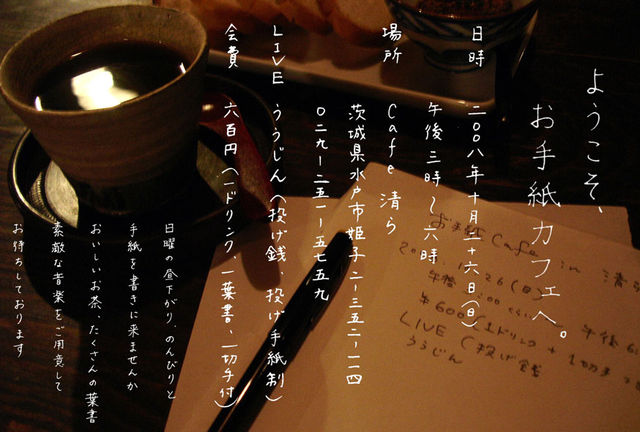 ようこそ、
お手紙カフェへ。
日時 二〇〇八年十月二十六日(日)
午後三時～六時
場所 Cafe 清ら
茨城県水戸市姫子二ー三五二ー一一四
〇二九ー二五一ー五七五九
LIVE ううじん(投げ銭、投げ手紙制)
会費 六百円(一ドリンク、一葉書、一切手付)
日曜の昼下がり、のんびりと
手紙を書きに来ませんか
おいしいお茶、たくさんの葉書
素敵な音楽をご用意して
お待ちしております
お手紙 Cafe in 清ら
26(日)
午後 午後 6
¥600(1ドリンク + 1切手
LIVE (投げ銭
ううじん